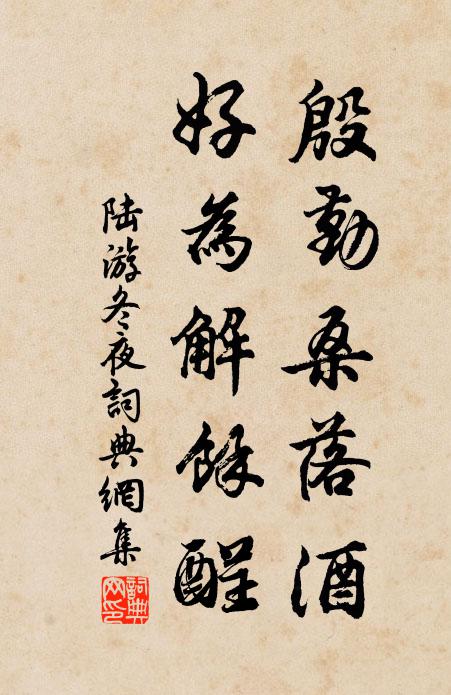 殷勤桑落酒
好為解餘酲
陸游冬夜詞典網集
詞典網印